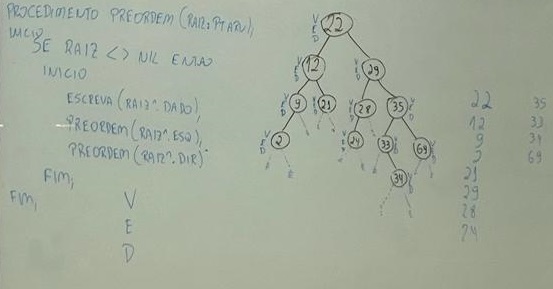 PROCEDIMENTO PREORDEM (RAIZ: PTARV);
INICIO
SE RAIZ <> NIL ENTAO
INICIO
ESCREVA (RAIZ^.DADO);
PREORDEM (RAIZ^.ESQ);
PREORDEM (RAIZ^.DIR)
FIM;
FIM;
V
E
D
22
12
29
9
21
28
35
2
24
33
69
34
22
12
9
2
21
29
28
24
35
33
34
69